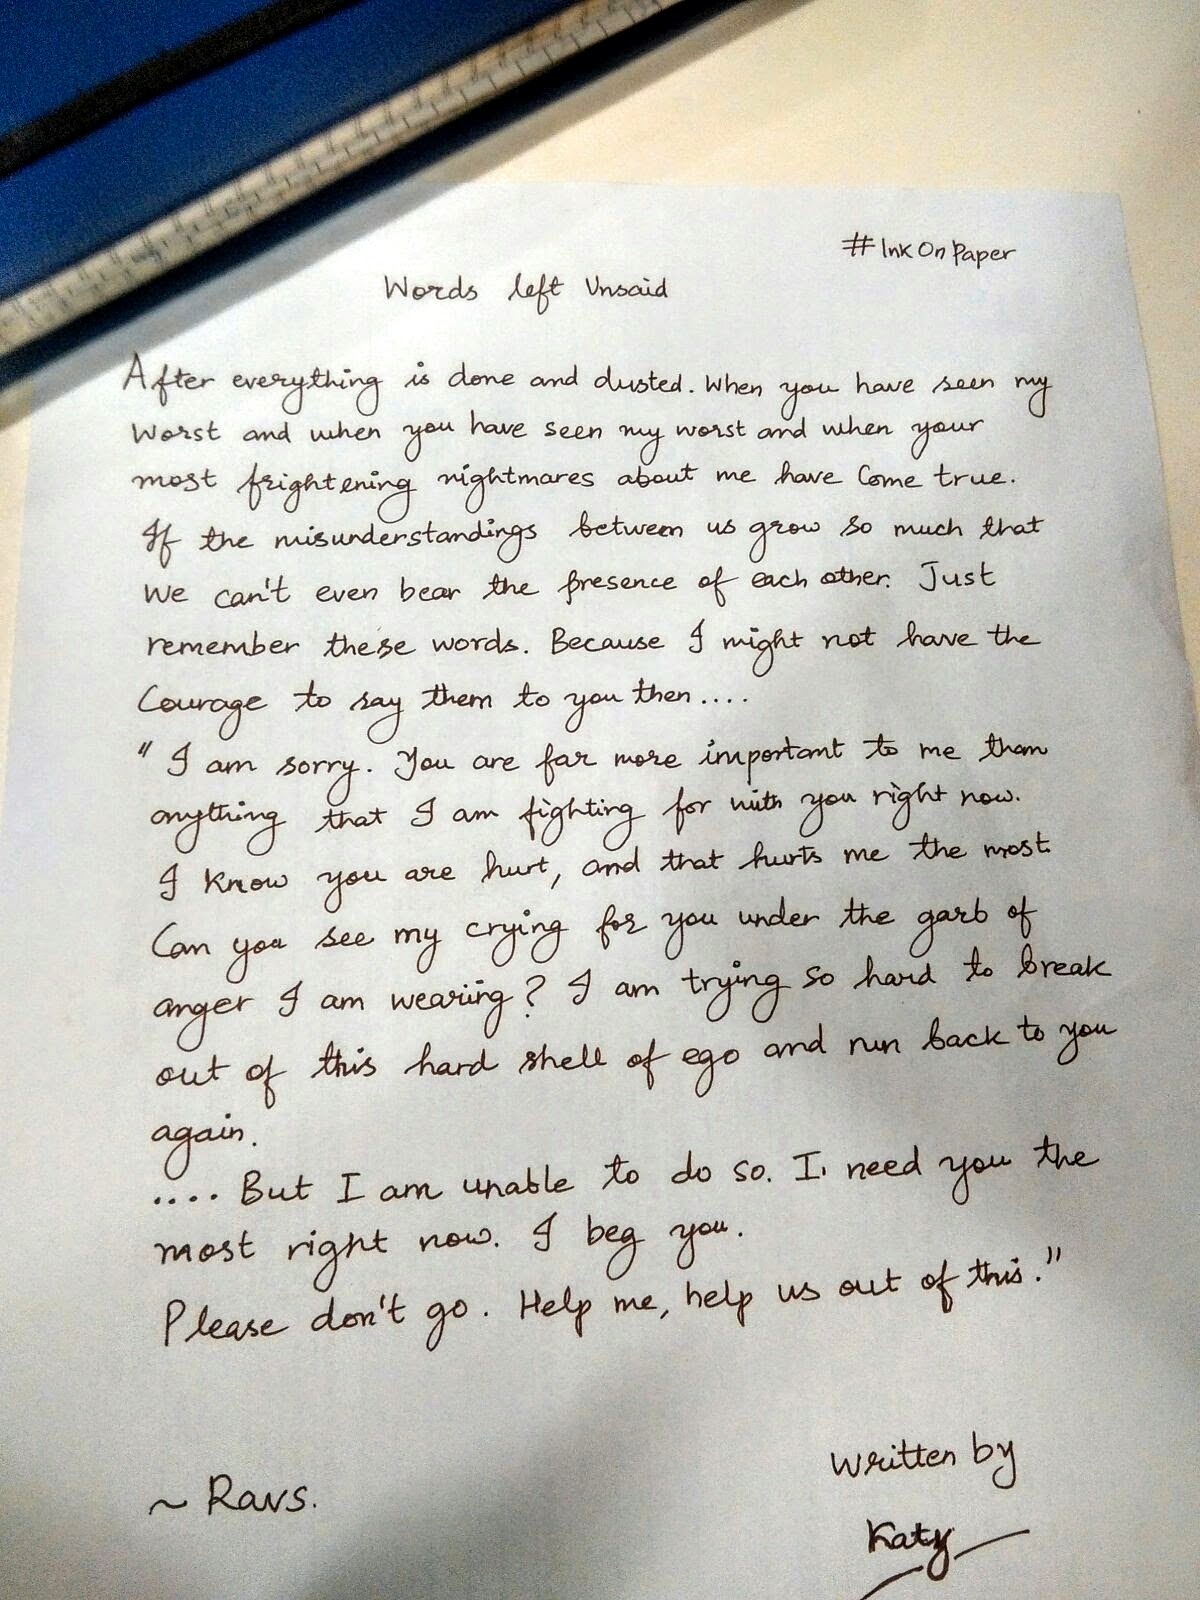 #InkOnPaper
Words left Unsaid
After everything is done and dusted. When you have seen my
worst and when you have seen my worst and when your
most frightening nightmares about me have come true.
If the misunderstandings between us grow so much that
we can't even bear the presence of each other. Just
remember these words. Because I might not have the
courage to say them to you then....
" I am sorry. You are far more important to me than
anything that I am fighting for with you right now.
I know you are hurt, and that hurts me the most.
Can you see my crying for you under the garb of
anger I am wearing? I am trying so hard to break
out of this hard shell of ego and run back to you
again.
.... But I am unable to do so. I need you the
most right now. I beg you.
Please don't go. Help me, help us out of this."
Written by
~ Ravs.
Katy